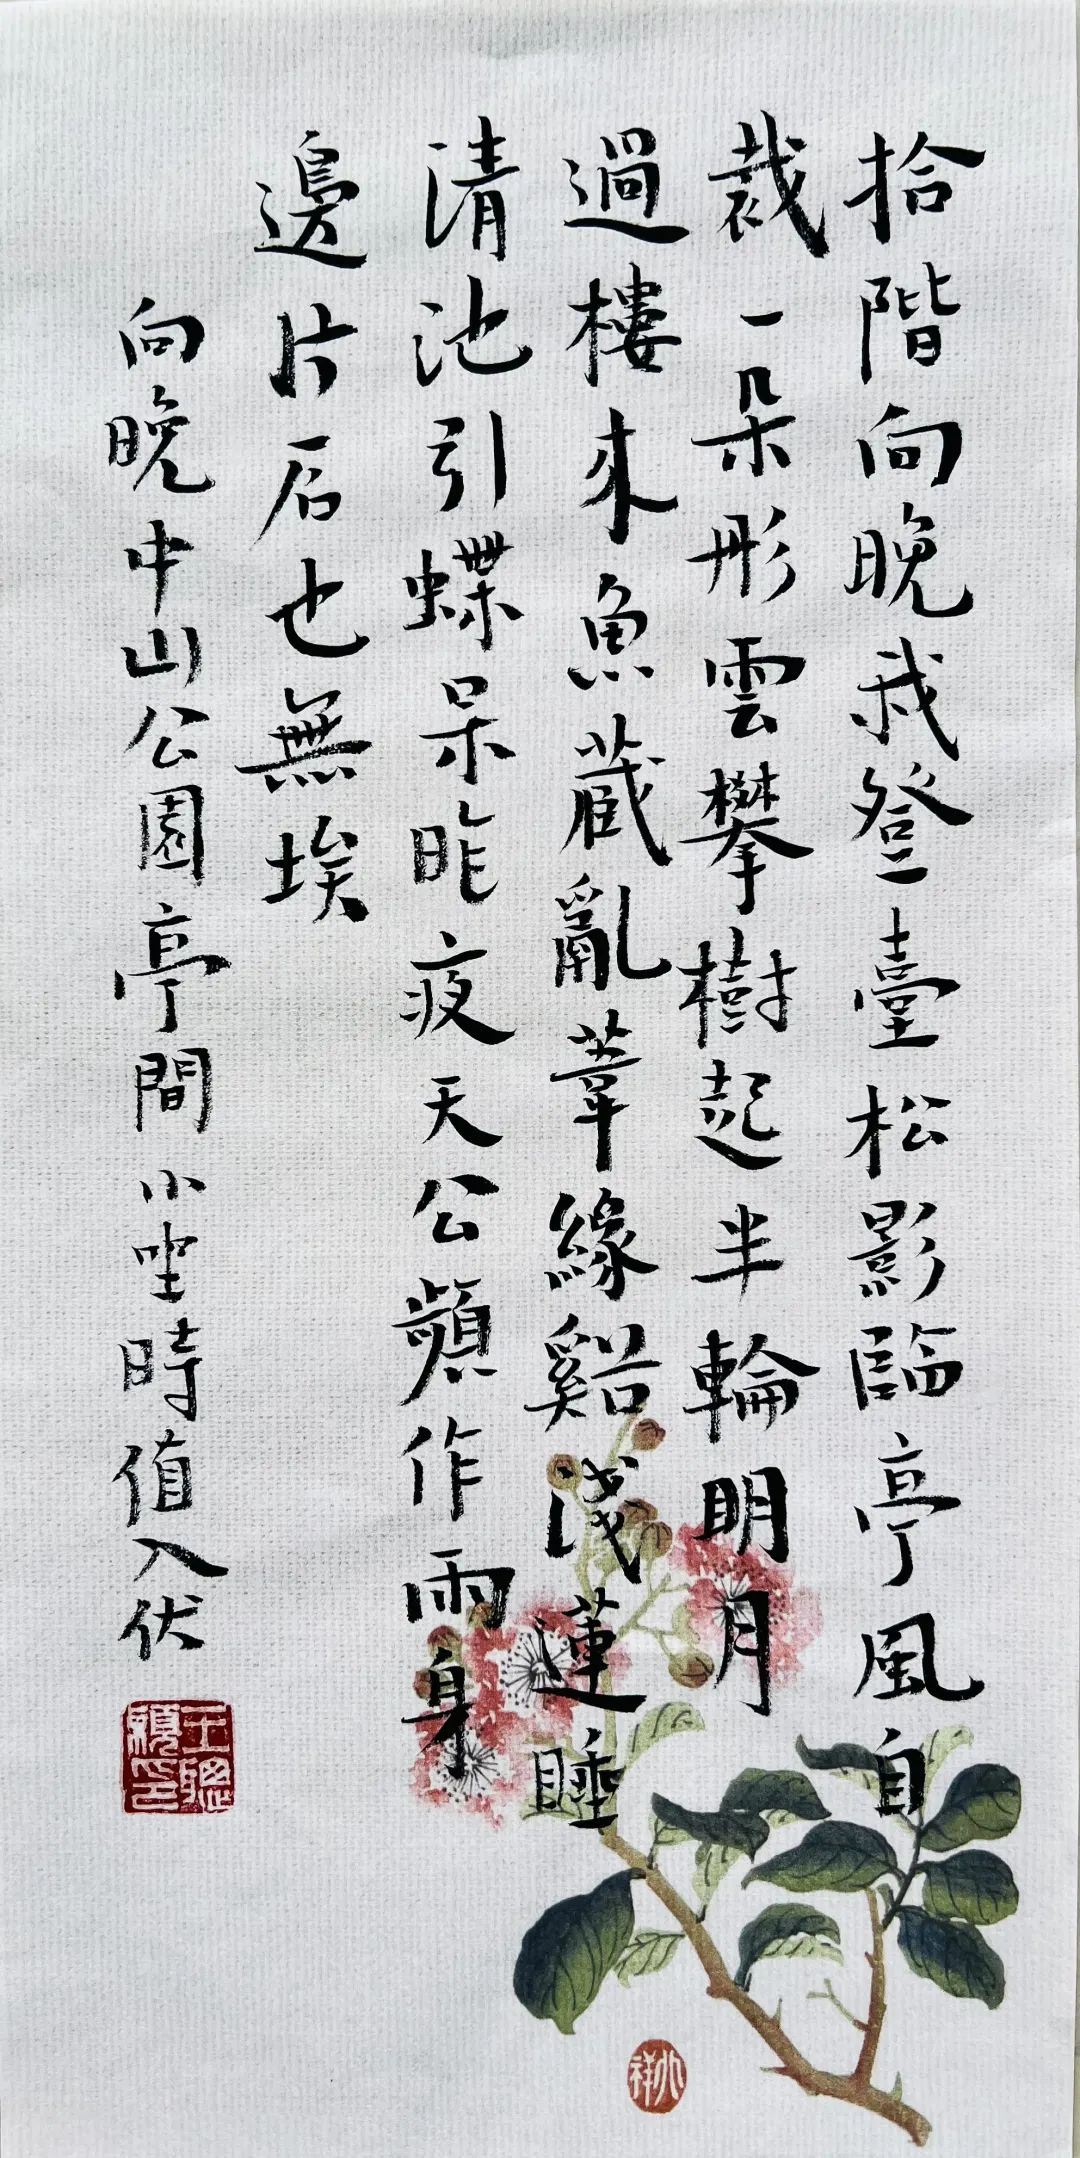 拾階向晚我登臺松影臨亭風自
裁一朵彤雲攀樹起半輪明月
過樓來魚藏亂葦緣谿淺蓮睡
清池引蝶呆昨夜天公頻作雨身
邊片石也無埃
向晚中山公園亭間小坐時值入伏
王聰
穎印